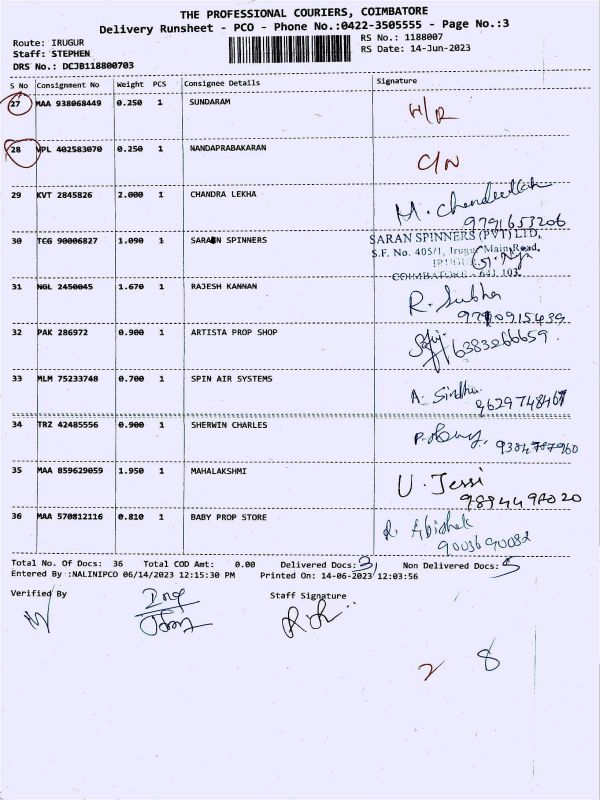 THE PROFESSIONAL COURIERS, COIMBATORE
Delivery Runsheet - PCO - Phone No.:0422-3505555 - Page No.:3
Route: IRUGUR
Staff: STEPHEN
DRS No.: DCJB118800703
RS No.: 1188007
RS Date: 14-Jun-2023
S No Consignment No Weight PCS Consignee Details Signature
27 MAA 938068449 0.250 1 SUNDARAM
28 VPL 402583070 0.250 1 NANDAPRABAKARAN C/N
29 KVT 2845826 2.000 1 CHANDRA LEKHA M. Chandralekha
9791653206
30 TCG 90006827 1.090 1 SARAN SPINNERS SARAN SPINNERS (PVT) LTD,
S.F. No. 405/1, Irugur Main Road,
IRUGUR
COIMBATORE - 641 103.
31 NGL 2450045 1.670 1 RAJESH KANNAN R. Subha
32 PAK 286972 0.900 1 ARTISTA PROP SHOP 6383266659
33 MLM 75233748 0.700 1 SPIN AIR SYSTEMS A. Sindhu
9629748467
34 TRZ 42485556 0.900 1 SHERWIN CHARLES
9384787960
35 MAA 859629059 1.950 1 MAHALAKSHMI U. Jessi
36 MAA 570812116 0.810 1 BABY PROP STORE R. Abishek
9003690032
Total No. Of Docs: 36 Total COD Amt: 0.00 Delivered Docs: 31 Non Delivered Docs: 5
Entered By :NALINIPCO 06/14/2023 12:15:30 PM Printed On: 14-06-2023 12:03:56
Verified By Staff Signature
2 8